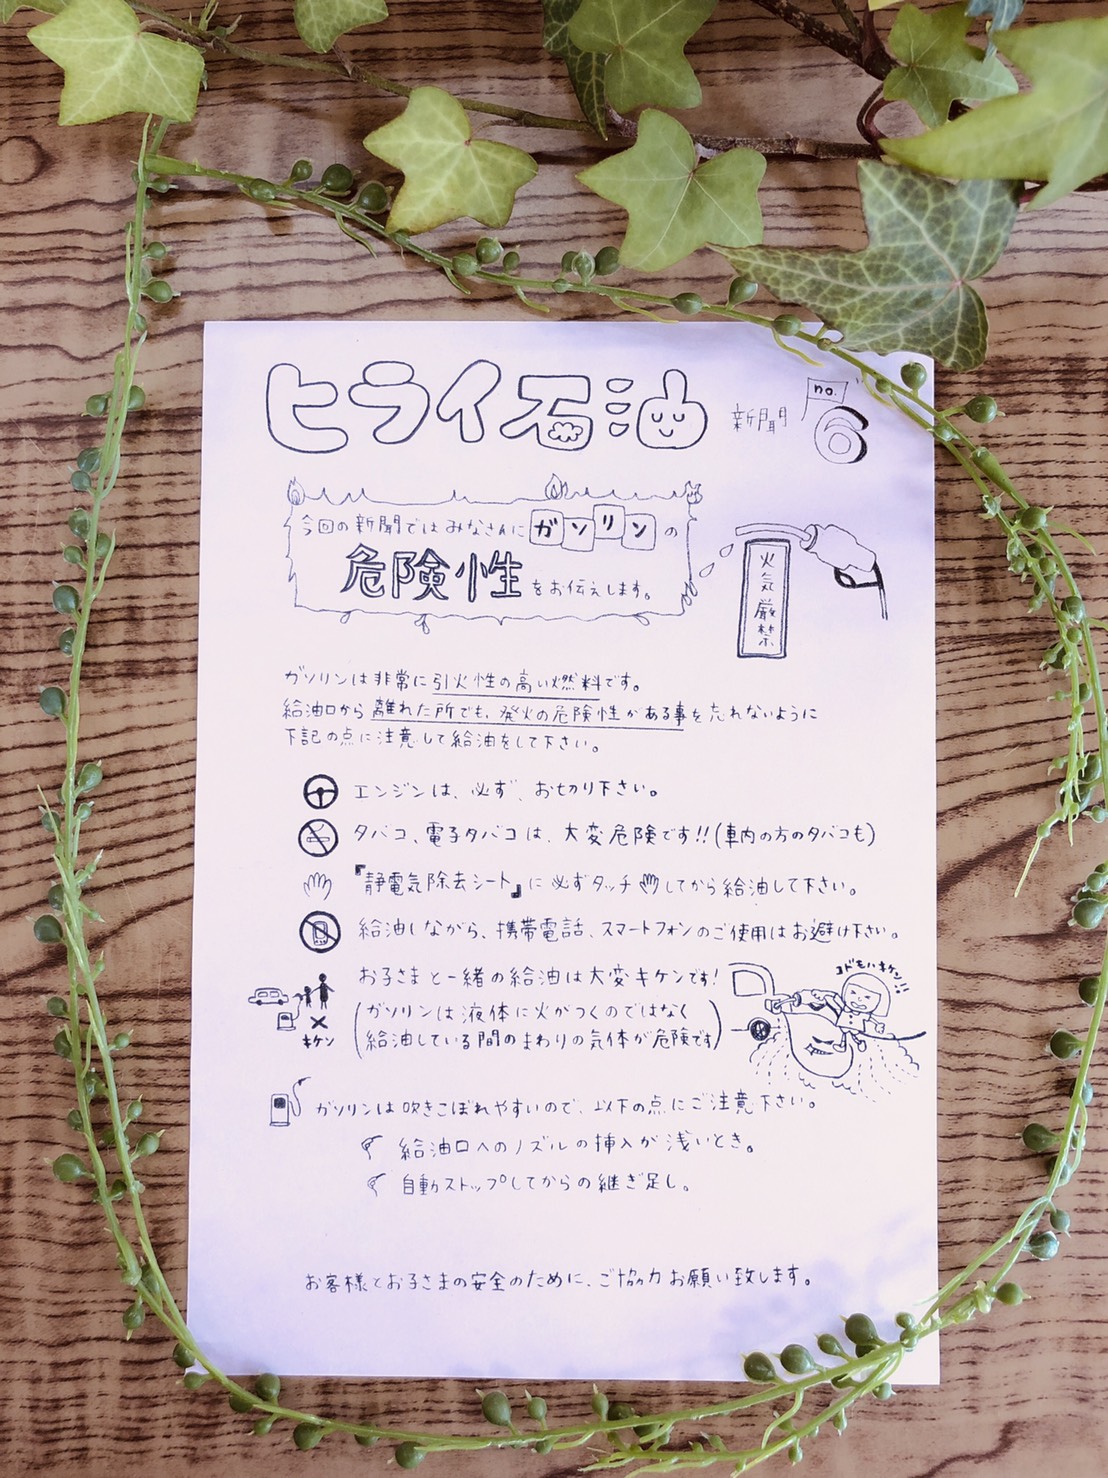 ヒライ石油 新聞 no. 6
今回の新聞ではみなさんにガソリンの
危険性をお伝えします。
火気厳禁
ガソリンは非常に引火性の高い燃料です。
給油口から離れた所でも、発火の危険性がある事を忘れないように
下記の点に注意して給油をして下さい。
エンジンは、必ず、お切り下さい。
タバコ、電子タバコは、大変危険です!!(車内の方のタバコも)
『静電気除去シート』に必ずタッチしてから給油して下さい。
給油しながら、携帯電話、スマートフォンのご使用はお避け下さい。
お子さまと一緒の給油は大変キケンです!
(ガソリンは液体に火がつくのではなく
給油している間のまわりの気体が危険です)
キケン
コドモハキケン!!
ガソリンは吹きこぼれやすいので、以下の点にご注意下さい。
給油口へのノズルの挿入が浅いとき。
自動ストップしてからの継ぎ足し。
お客様とお子さまの安全のために、ご協力お願い致します。